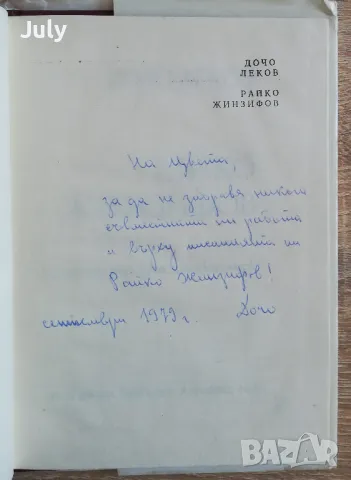 July
ДОЧО
ЛЕКОВ
РАЙКО
ЖИНЗИФОВ
На Цвета,
за да не забравя никога
съвместната ни работа
и върху писанията на
Райко Жинзифов!
септември 1979 г. Дочо
БАЗАР
САМО ЗА ХОРА